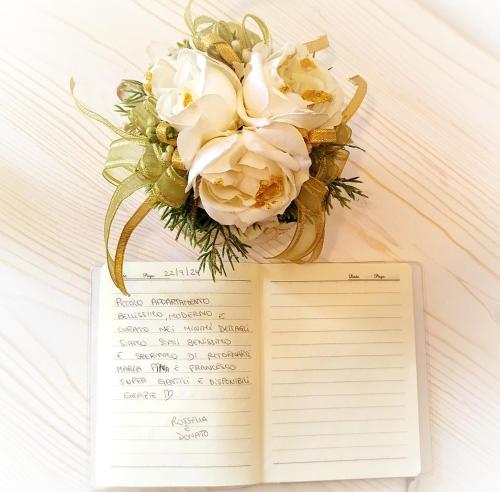 Page 22/9/24
PICCOLO APPARTAMENTO
BELLISSIMO, MODERNO E
CURATO NEI MINIMI DETTAGLI.
SIAMO STATI BENISSIMO
E SPERIAMO DI RITORNARCI
MARIA PINA E FRANCESCO
SUPER GENTILI E DISPONIBILI.
GRAZIE ♡
ROSSELLA
E
DONATO
Date Page